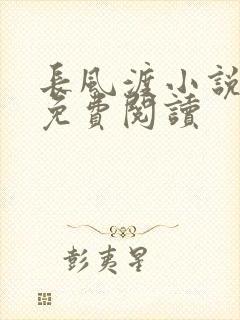 長風渡小說
免費閱讀
彭夷星